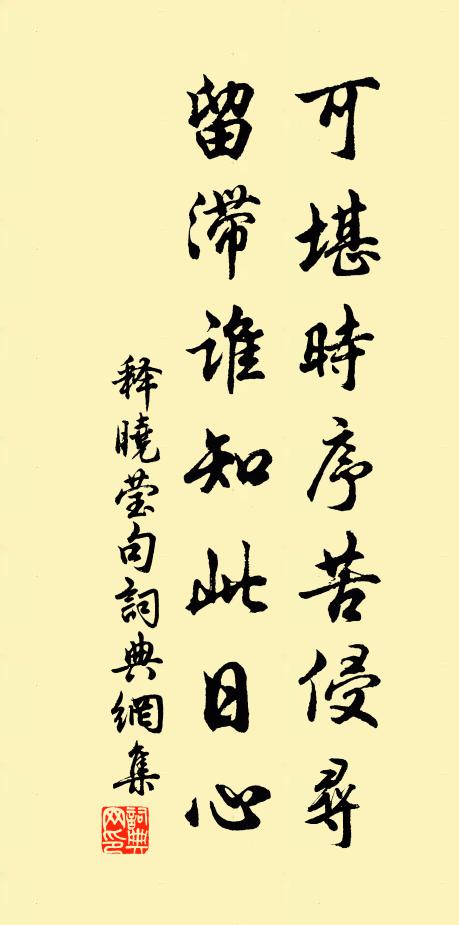 可堪時序苦侵尋
留滯誰知此日心
释曉莹句詞典網集
詞典网印